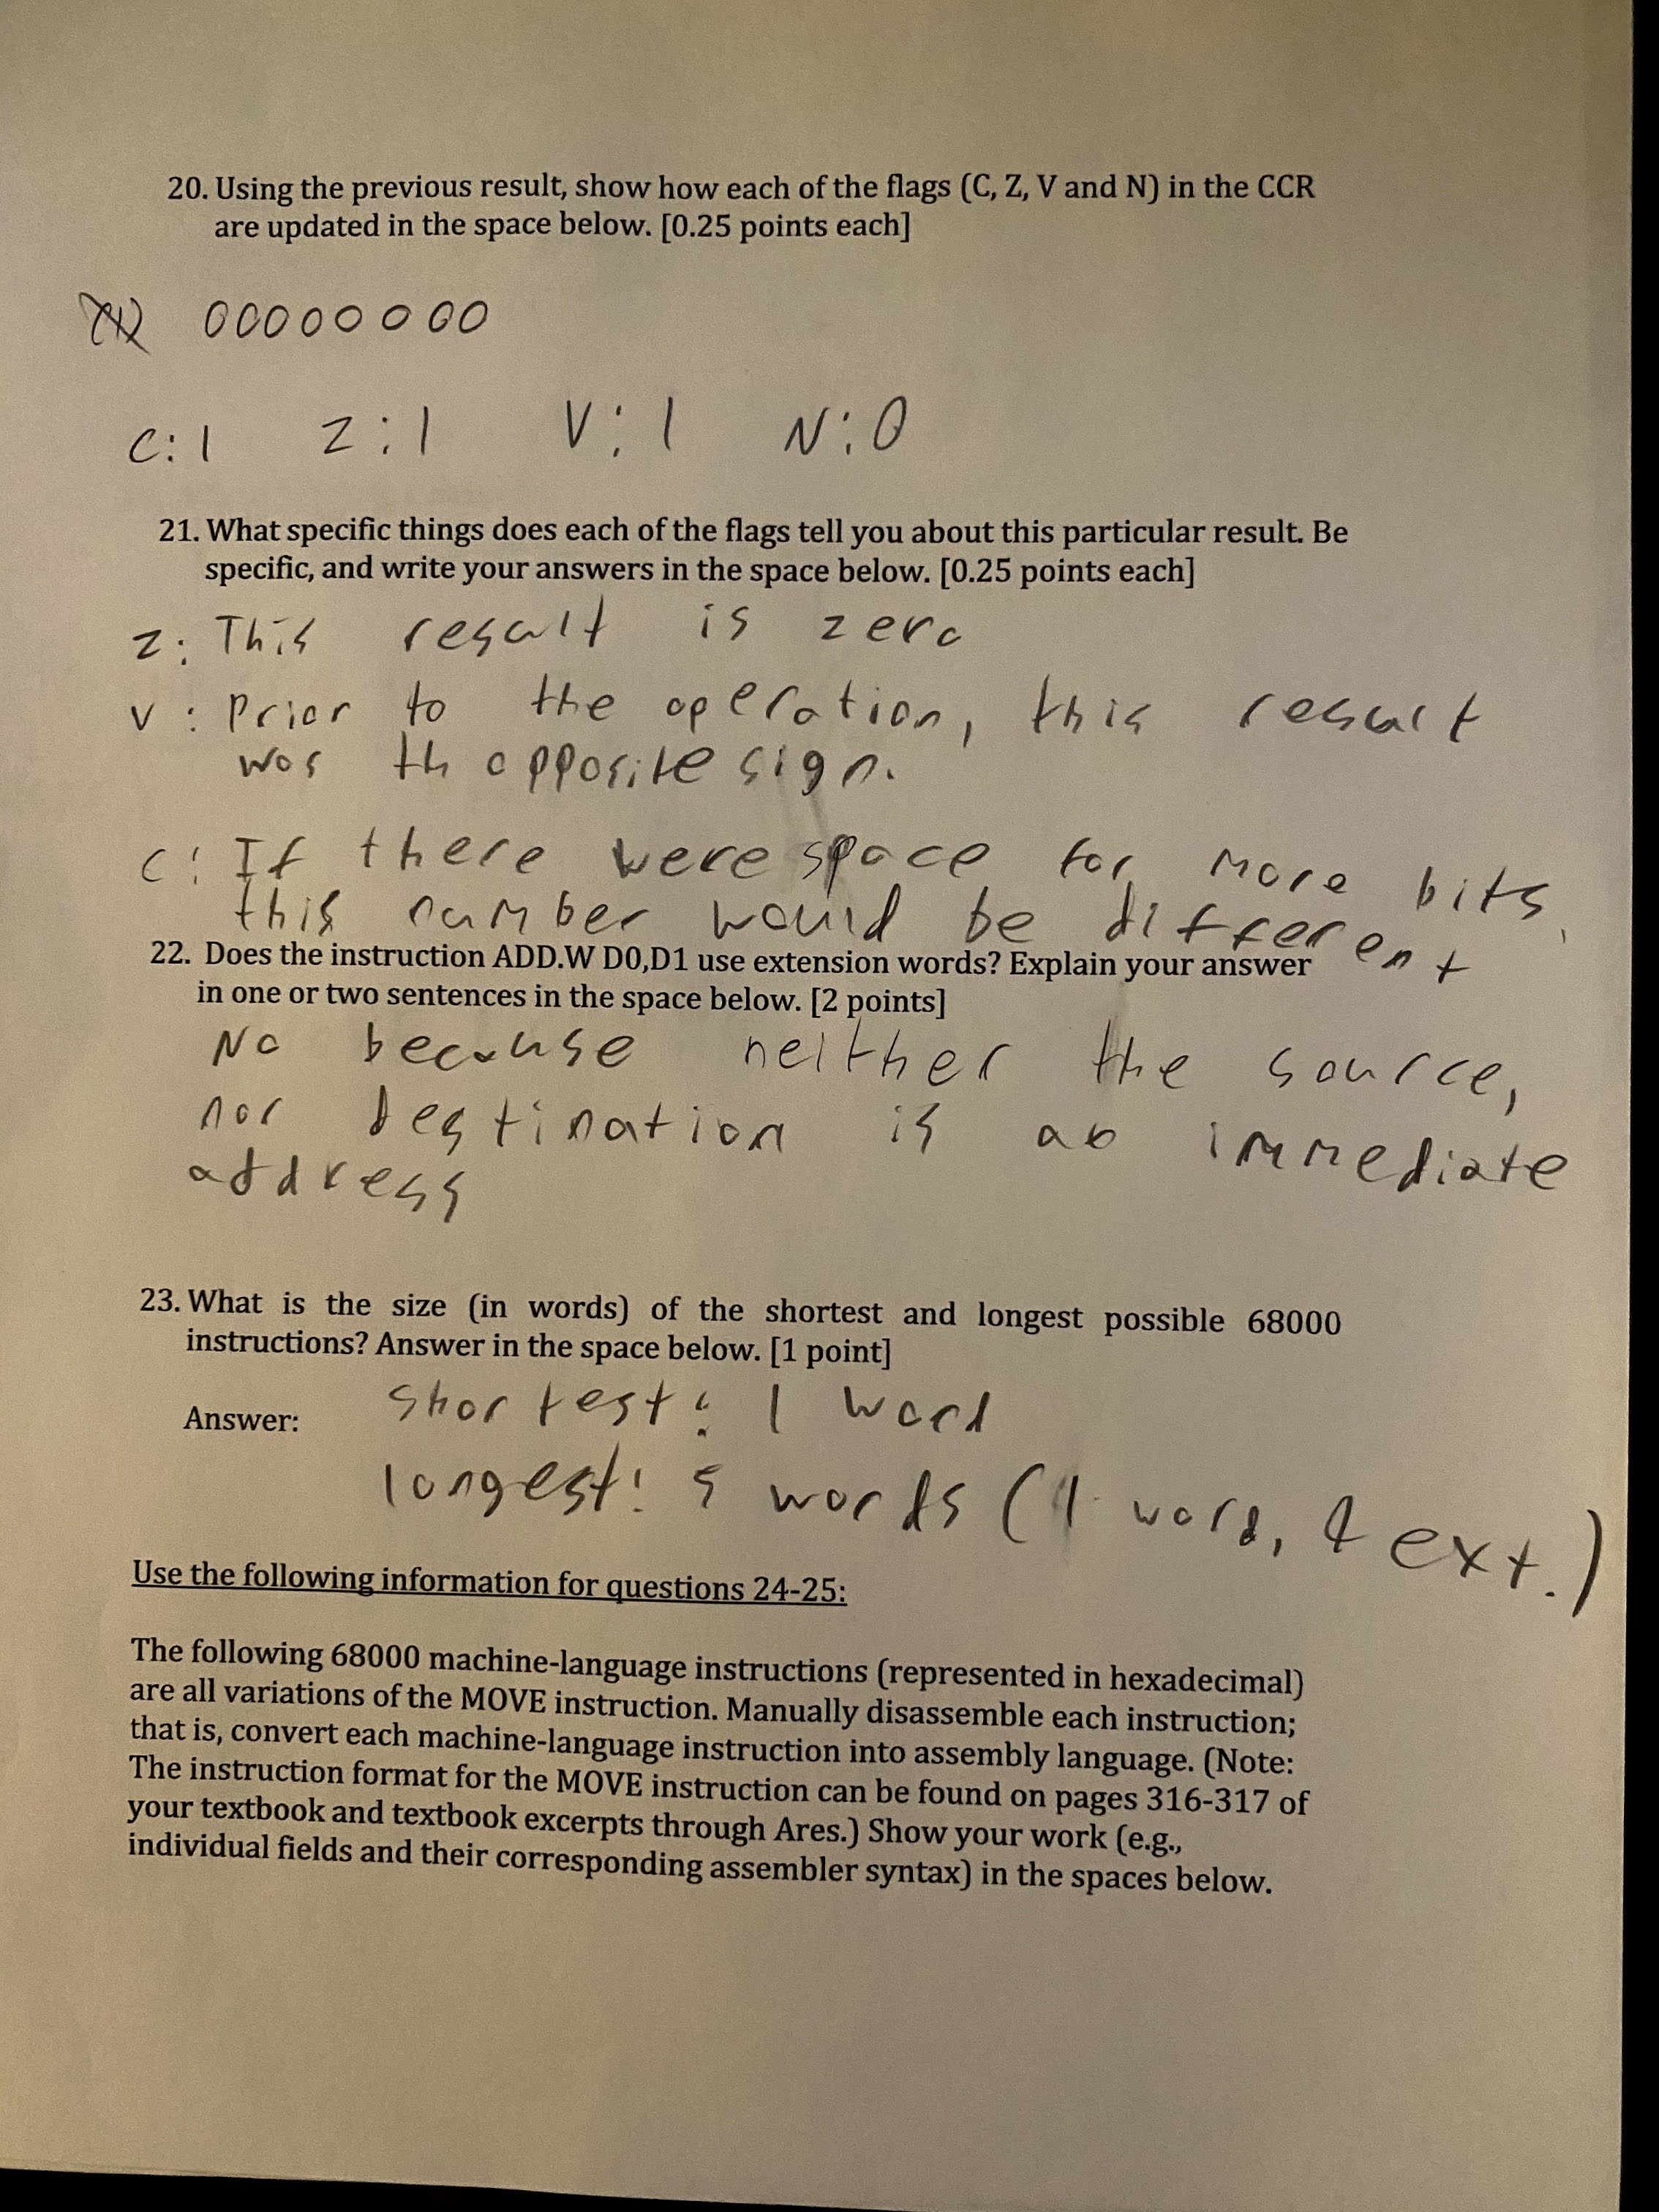 20. Using the previous result, show how each of the flags (C, Z, V and N) in the CCR
are updated in the space below. [0.25 points each]
00000000
C: 1 Z: 1 V: 1 N: 0
21. What specific things does each of the flags tell you about this particular result. Be
specific, and write your answers in the space below. [0.25 points each]
Z: This result is zero
V: Prior to the operation, this result
was th opposite sign.
C: If there were space for more bits,
this number would be different
22. Does the instruction ADD.W D0,D1 use extension words? Explain your answer
in one or two sentences in the space below. [2 points]
No because neither the source,
nor destination is an immediate
address
23. What is the size (in words) of the shortest and longest possible 68000
instructions? Answer in the space below. [1 point]
Answer: shortest: 1 word
longest: 5 words (1 word, 4 ext.)
Use the following information for questions 24-25:
The following 68000 machine-language instructions (represented in hexadecimal)
are all variations of the MOVE instruction. Manually disassemble each instruction;
that is, convert each machine-language instruction into assembly language. (Note:
The instruction format for the MOVE instruction can be found on pages 316-317 of
your textbook and textbook excerpts through Ares.) Show your work (e.g.,
individual fields and their corresponding assembler syntax) in the spaces below.